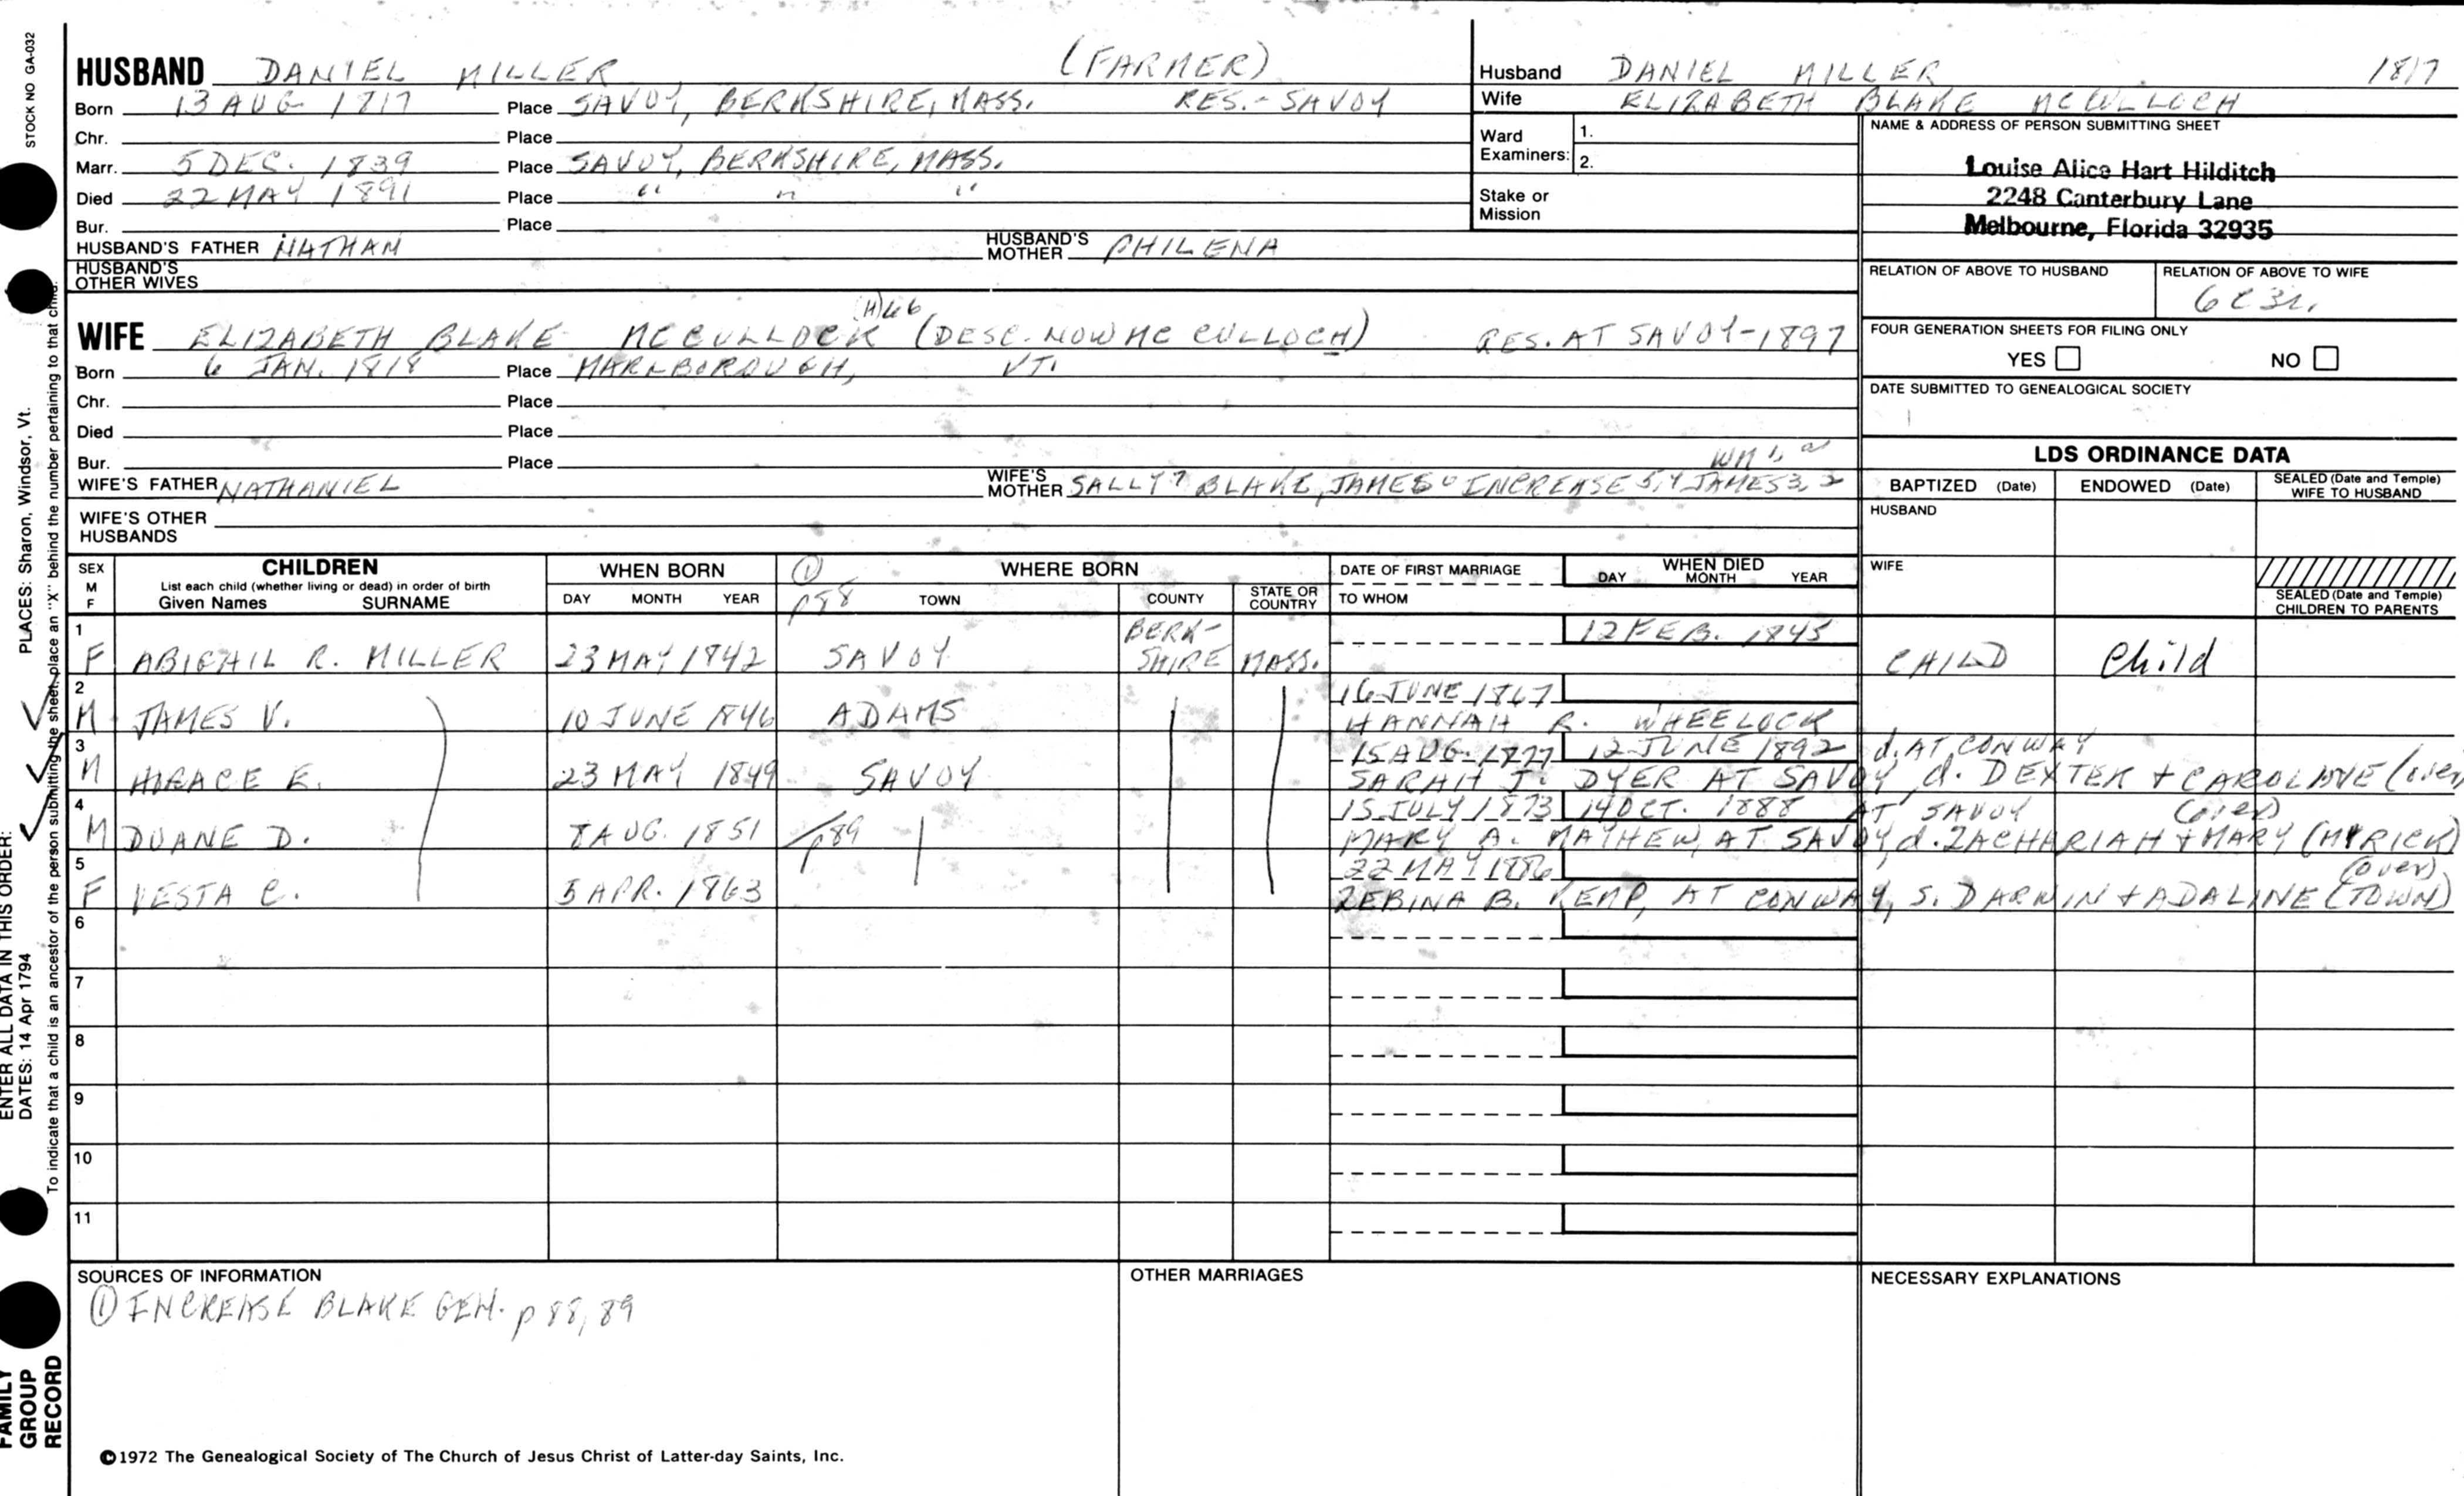 STOCK NO GA-032
HUSBAND DANIEL MILLER (FARMER)
Born 13 AUG 1817 Place SAVOY, BERKSHIRE, MASS. RES.- SAVOY
Chr. Place
Marr. 5 DEC. 1839 Place SAVOY, BERKSHIRE, MASS.
Died 22 MAY 1891 Place " " "
Bur. Place
HUSBAND'S FATHER NATHAN HUSBAND'S MOTHER PHILENA
HUSBAND'S OTHER WIVES
(H)66
WIFE ELIZABETH BLAKE MCCULLOCK (DESC. NOW MC CULLOCH) RES. AT SAVOY-1897
Born 6 JAN. 1818 Place MARLBOROUGH, VT.
Chr. Place
Died Place
Bur. Place
WM 1,
WIFE'S FATHER NATHANIEL WIFE'S MOTHER SALLY 7 BLAKE, JAMES 6 INCREASE 5,4 JAMES 3, 2
WIFE'S OTHER HUSBANDS
Husband DANIEL MILLER 1817
Wife ELIZABETH BLAKE MCCULLOCH
Ward Examiners: 1.
2.
Stake or Mission
NAME & ADDRESS OF PERSON SUBMITTING SHEET
Louise Alice Hart Hilditch
2248 Canterbury Lane
Melbourne, Florida 32935
RELATION OF ABOVE TO HUSBAND RELATION OF ABOVE TO WIFE
6C3R.
FOUR GENERATION SHEETS FOR FILING ONLY
YES NO
DATE SUBMITTED TO GENEALOGICAL SOCIETY
LDS ORDINANCE DATA
BAPTIZED (Date) ENDOWED (Date) SEALED (Date and Temple) WIFE TO HUSBAND
HUSBAND
WIFE
SEALED (Date and Temple) CHILDREN TO PARENTS
SEX M F CHILDREN
List each child (whether living or dead) in order of birth
Given Names SURNAME
WHEN BORN
DAY MONTH YEAR
① p88
WHERE BORN
TOWN COUNTY STATE OR COUNTRY
DATE OF FIRST MARRIAGE
TO WHOM
WHEN DIED
DAY MONTH YEAR
1 F ABIGAIL R. MILLER 23 MAY 1842 SAVOY BERK-SHIRE MASS. 12 FEB. 1845 CHILD Child
2 M JAMES V. 10 JUNE 1846 ADAMS 16 JUNE 1867
HANNAH R. WHEELOCK
3 M HORACE E. 23 MAY 1849 SAVOY 15 AUG. 1877 12 JUNE 1892 d. AT CONWAY
SARAH J. DYER AT SAVOY, d. DEXTER + CAROLINE (over)
4 M DUANE D. 8 AUG. 1851 p89 15 JULY 1873 14 OCT. 1888 AT SAVOY (over)
MARY A. MAYHEW, AT SAVOY, d. ZACHARIAH + MARY (MYRICK)
5 F VESTA C. 5 APR. 1863 22 MAY 1886 (over)
ZEBINA B. KEMP, AT CONWAY, S. DARWIN + ADALINE (TOWN)
6
7
8
9
10
11
SOURCES OF INFORMATION
① INCREASE BLAKE GEN. p 88, 89
OTHER MARRIAGES
NECESSARY EXPLANATIONS
©1972 The Genealogical Society of The Church of Jesus Christ of Latter-day Saints, Inc.
FAMILY GROUP RECORD
ENTER ALL DATA IN THIS ORDER:
DATES: 14 Apr 1794
PLACES: Sharon, Windsor, Vt.
To indicate that a child is an ancestor of the person submitting the sheet, place an "X" behind the number pertaining to that child.